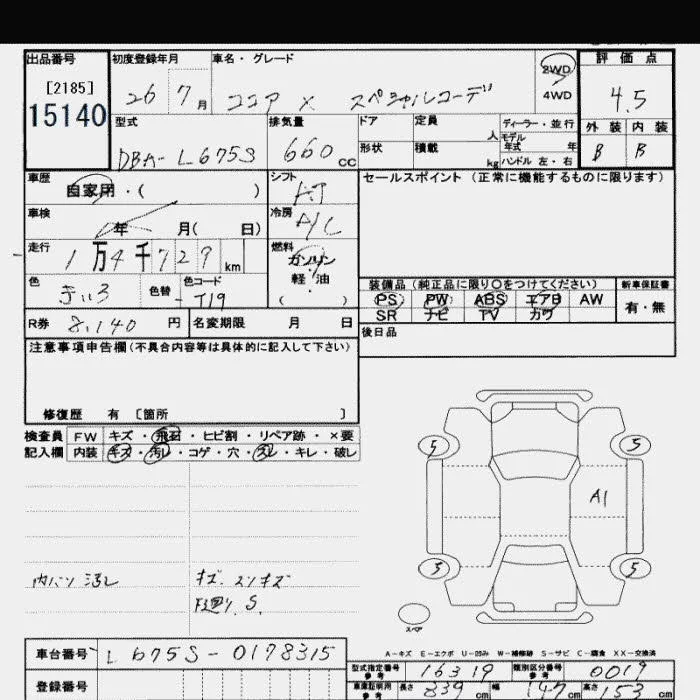 出品番号 初度登録年月 車名・グレード 2WD 評価点
[2185]
15140 26 7月 ココア X スペシャルコーデ 4WD 4.5
型式 排気量 ドア 定員 人 ディーラー・並行 外装 内装
DBA-L675S 660cc 形状 積載 kg モデル年式 年 B B
ハンドル 左・右
車歴 自家用・( ) シフト AT セールスポイント (正常に機能するものに限ります)
車検 年 月( 日) 冷房 A/C
走行 1万4千729km 燃料 ガソリン
軽・油
( )
色 色替 色コード T19 装備品 (純正品に限り○をつけてください) 新車保証書
PS PW ABS エアB AW 有・無
SR ナビ TV カワ
R券 8,140円 名変期限 月 日 後日品
注意事項申告欄(不具合内容等は具体的に記入して下さい)
修復歴 有 [箇所 ]
検査員 FW キズ・飛石・ヒビ割・リペア跡・×要
記入欄 内装 キズ・汚レ・コゲ・穴・スレ・キレ・破レ
5 5
A1
5 5
内ハン 汚レ キズ スリキズ
下廻り S.
スペア
A-キズ E-エクボ U-凹み W-補修跡 S-サビ C-腐食 XX-交換済
車台番号 L675S-0178315
型式指定番号 参考 16319 類別区分番号 参考 0019
登録番号 車庫証明用 参考 長さ 339cm 幅 147cm 高さ 153cm